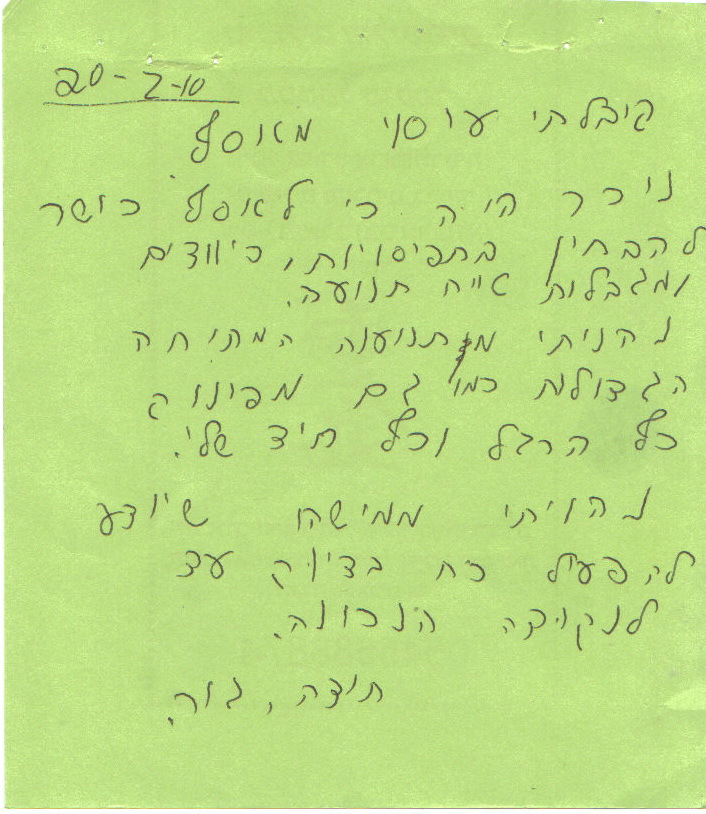 20-2-10
קיבלתי עיסוי מאסף
ניכר היה כי לאסף כושר
להבחין בתפיסויות, כיווצים
ומגבלות טווח תנועה.
נהניתי מתנועות המתיחה
הגדולות כמו גם מפינוק
כף הרגל וכף היד שלי.
נהניתי ממישהו שיודע
להפעיל כח בדיוק עד
לנקודה הנכונה.
תודה, גור.